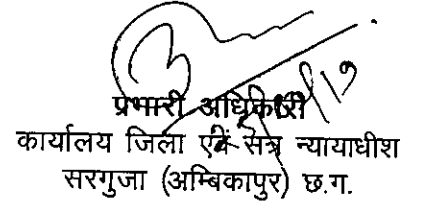 प्रभारी अधिकारी
कार्यालय जिला एवं सत्र न्यायाधीश
सरगुजा (अम्बिकापुर) छ.ग.